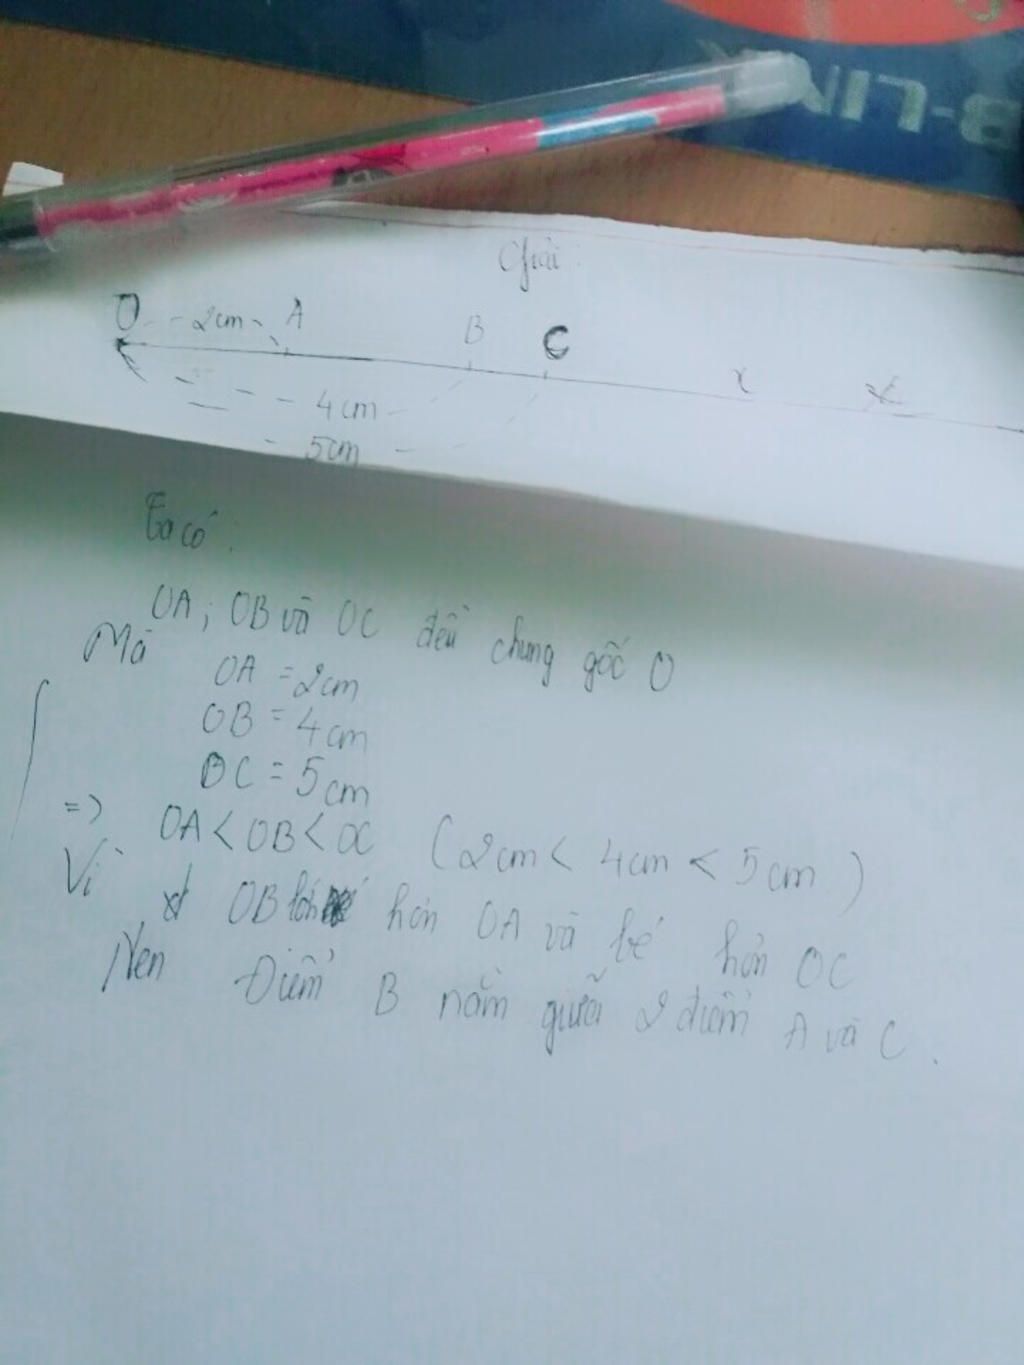 B-LIN
Giải:
O 2cm A B C x x
4cm
5cm
Ta có:
OA; OB và OC đều chung gốc O
Mà OA = 2cm
OB = 4cm
OC = 5cm
=> OA < OB < OC (2cm < 4cm < 5cm)
Vì OB lớn hơn OA và bé hơn OC
Nên Điểm B nằm giữa 2 điểm A và C.